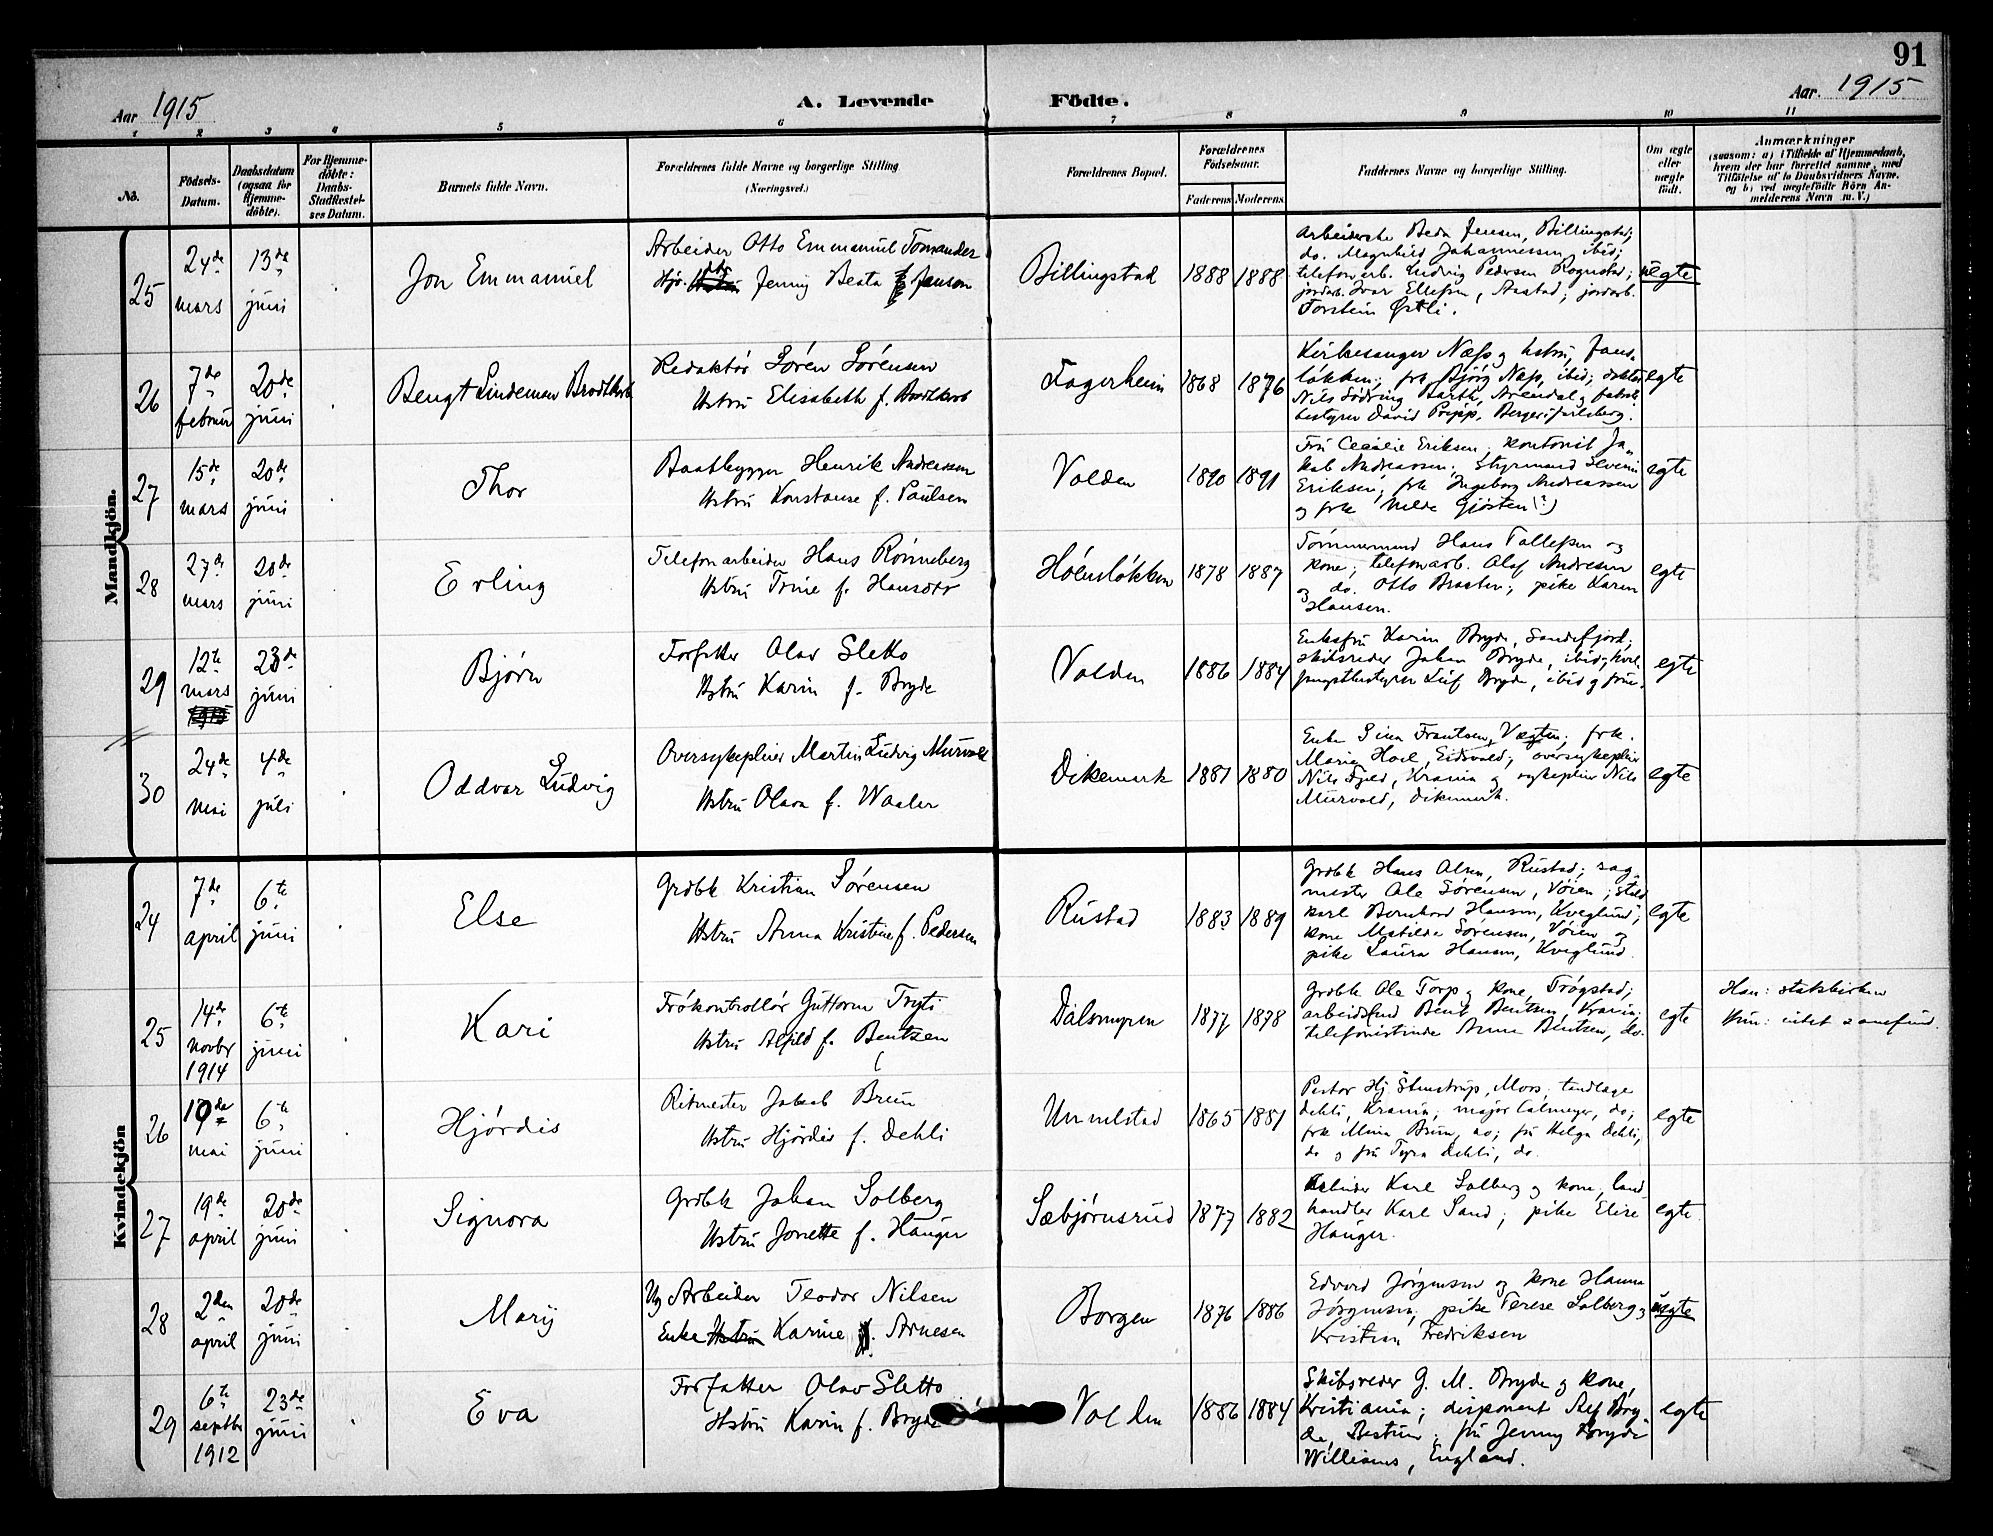 91
Aar 1915
A. Levende Födte.
Aar. 1915
1 2 3 4 5 6 7 8 9 10 11
No.
Födsels-Datum.
Daabsdatum (ogsaa for Hjemme-döbte).
For Hjemme-döbte: Daabs-Stadfæstel-ses Datum.
Barnets fulde Navn.
Forældrenes fulde Navne og borgerlige Stilling
(Næringsvei.)
Forældrenes Bopæl.
Forældrenes Födselsaar.
Faderens Moderens
Faddernes Navne og borgerlige Stilling.
Om ægte eller uægte födt.
Anmærkninger
(saasom: a) i Tilfælde af Hjemmedaab,
hvem der har forrettet samme, med
Tilföielse af to Daabsvidners Navne,
og b) ved uægtefödte Börn An-
melderens Navn m. V.)
Mandkjön.
25
24de mars
13de juni
Jon Emmanuel
Arbeider Otto Emmanuel Tornander
Jenny Beata Janson
Billingstad
1888 1888
Arbeiderske Beda Jensen, Billingstad;
do. Magnhild Johannessen, ibid;
telefonarb. Ludvig Pedersen Rognstad;
jordarb. Ivar Ellefsen, Aastad; jordarb.
Torstein Østli.
uegte
26
7de februar
20de juni
Bengt Lindeman Brodtkorb
Redaktør Søren Sørensen
Hstru Elisabeth f. Brodtkorb
Fagerheim
1868 1876
Kirkesanger Næss og hstru,
løkken; frk Bjørg Næss, ibid; doktor
Nils Södring Barth, Arendal og
bestyrer David Pripp,
egte
27
15de mars
20de juni
Thor
Baatbygger Henrik Andreassen
Hstru Konstanse f. Paulsen
Volden
1890 1891
Fru Cecilie Eriksen, kontorist Ja-
kob Andreassen; Styrmand Severin
Eriksen; frk Ingeborg Andreassen
og frk Hilda Gjösten (?)
egte
28
27de mars
20de juni
Erling
Telefonarbeider Hans Rønneberg
Hstru Trine f. Hansdtr
Høensløkken
1878 1887
Tømmermand Hans Tollefsen og
kone; telefonarb. Olaf Andresen
og do. Otto Braaten; pike Karen
Hansen.
egte
29
12te mars
23de juni
Bjørn
Forfatter Olav Sletto
Hstru Karin f. Bryde
Volden
1886 1884
Enkefru Karin Bryde, Sandefjord;
skibsreder Johan Bryde, ibid; hval-
fangstbestyrer Leif Bryde, ibid og frue.
egte
30
24de mai
4de juli
Oddvar Ludvig
Oversykepleier Martin Ludvig Murvold
Hstru Olava f. Waaler
Dikemark
1881 1880
Enke Sina Frantsen, Vegten; frk.
Marie Hoel, Eidsvold; oversykepleier
Nils Fjeld, Krania og sykepleier Nils
Murvold, Dikemark.
egte
Kvindekjön
24
7de april
6te juni
Else
Grdbk Kristian Sørensen
Hstru Anna Kristine f. Pedersen
Rustad
1883 1889
Grdbk Hans Olsen, Rustad; sag-
mester Ole Sørensen, Vøien; stald
karl Bernhard Hansen, Kveglund;
kone Matilde Sørensen, Vøien og
pike Laura Hansen, Kveglund.
egte
25
14de novbr 1914
6te juni
Kari
Frøkontrollør Guttorm Tryti
Hstru Alfild f. Bentzen
Dalsmyren
1877 1878
Grdbk Ole Torp og kone, Trøgstad;
arbeidsfmd Bent Bentsen, Krania;
telefonistinde Anna Bentsen, do.
egte
Han: statskirken
Hun: intet samfund.
26
10de mai
6te juni
Hjørdis
Ritmester Jakob Brun
Hstru Hjørdis f. Dehli
Unnelstad
1865 1881
Pastor Hj. Stenstrup, Mors; tandlæge
Dehli, Krania; major Calmeyer, do;
frk Mina Brun, do; fru Helga Dehli,
do og fru Tyra Dehli, do.
egte
27
19de april
20de juni
Signora
Grdbk Johan Solberg
Hstru Jonette f. Hauger
Sæbjørnsrud
1877 1882
Arbeider Karl Solberg og kone, land
handler Karl Sand; pike Elise
Hauger.
egte
28
2den april
20de juni
Mary
Ug Arbeider Teodor Nilsen
Enke Karine Arnesen
Borgen
1876 1886
Edvard Jørgensen og kone Hanna
Jørgensen; pike Terese Solberg og
Kristian Fredriksen
uegte
29
6te septbr 1912
23de juni
Eva
Forfatter Olav Sletto
Hstru Karin f. Bryde
Volden
1886 1884
Skibsreder G. M. Bryde og kone,
Kristiania; disponent Alf Bry-
de, Bestum; fru Jenny Bryde
Williams, England.
egte